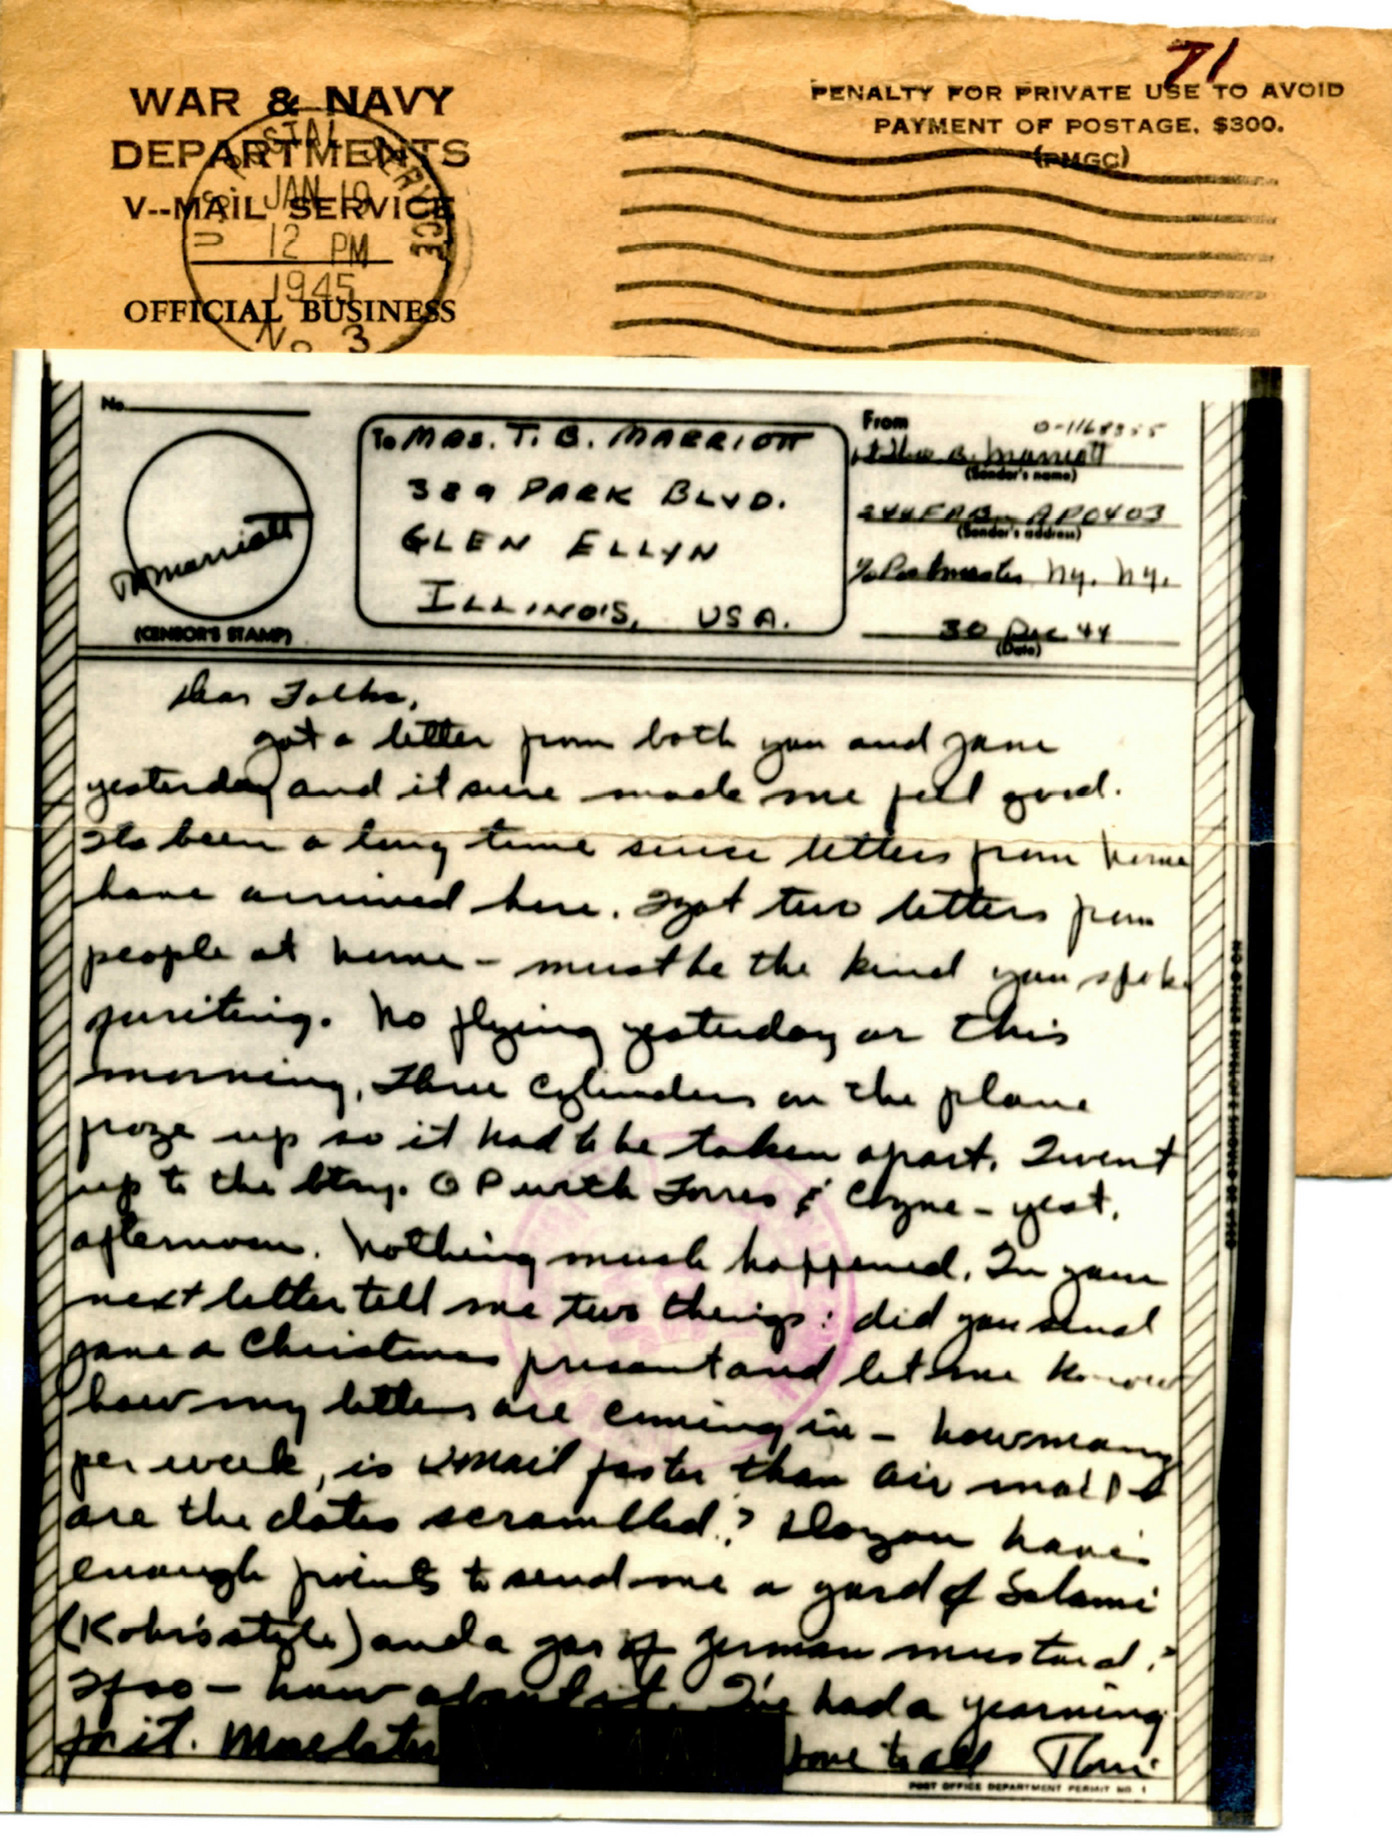 71
WAR & NAVY
DEPARTMENTS
V--MAIL SERVICE
OFFICIAL BUSINESS
U.S. POSTAL SERVICE
JAN 10
12 PM
1945
No 3
PENALTY FOR PRIVATE USE TO AVOID
PAYMENT OF POSTAGE, $300.
(PMGC)
No.
TMarriott
(CENSOR'S STAMP)
To MRS. T. B. MARRIOTT
389 PARK BLVD.
GLEN ELLYN
ILLINOIS, USA.
From
B. Marriott
(Sender's name)
244 FAB APO 403
(Sender's address)
% Postmaster Ny. Ny.
30 Dec 44
(Date)
Dear Folks,
got a letter from both you and Jane
yesterday and it sure made me feel good.
Its been a long time sence letters from home
have arrived here. I got two letters from
people at home - must be the kind you spoke
writing. No flying yesterday or this
morning, three cylinders on the plane
froze up so it had to be taken apart. I went
up to the btry. O P with Torres & Clyne - yest.
afternoon. Nothing much happened. In your
next letter tell me two things: did you send
Jane a Christmas present and let me know
how my letters are coming in - how many
per week, is vmail faster than air mail &
are the dates scrambled? Do you have
enough points to send me a yard of Salami
(Kohr's style) and a jar of german mustard?
If so - how about it. I've had a yearning
for it. More later Love to all Tom
POST OFFICE DEPARTMENT PERMIT NO. 1